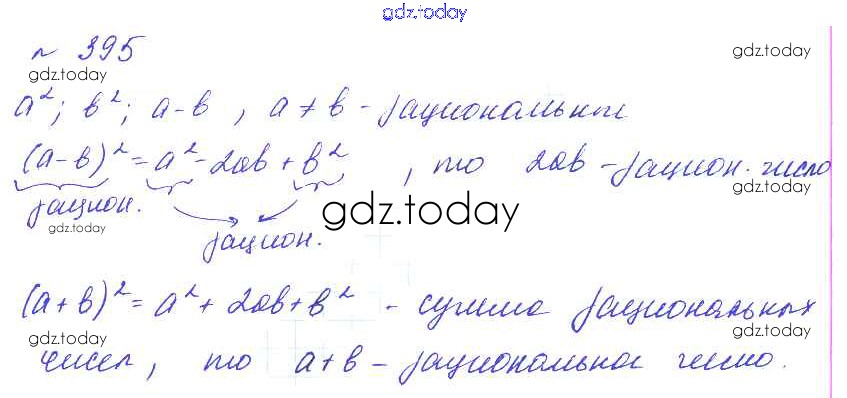 gdz.today
№ 395
gdz.today
gdz.today
a²; b²; a-b, a≠b - рациональные
(a-b)² = a² - 2ab + b², то 2ab - рацион. число
gdz.today
рацион.
gdz.today
gdz.today
рацион.
(a+b)² = a² + 2ab + b² - сумма рациональных
gdz.today
gdz.today
чисел, то a+b - рациональное число.